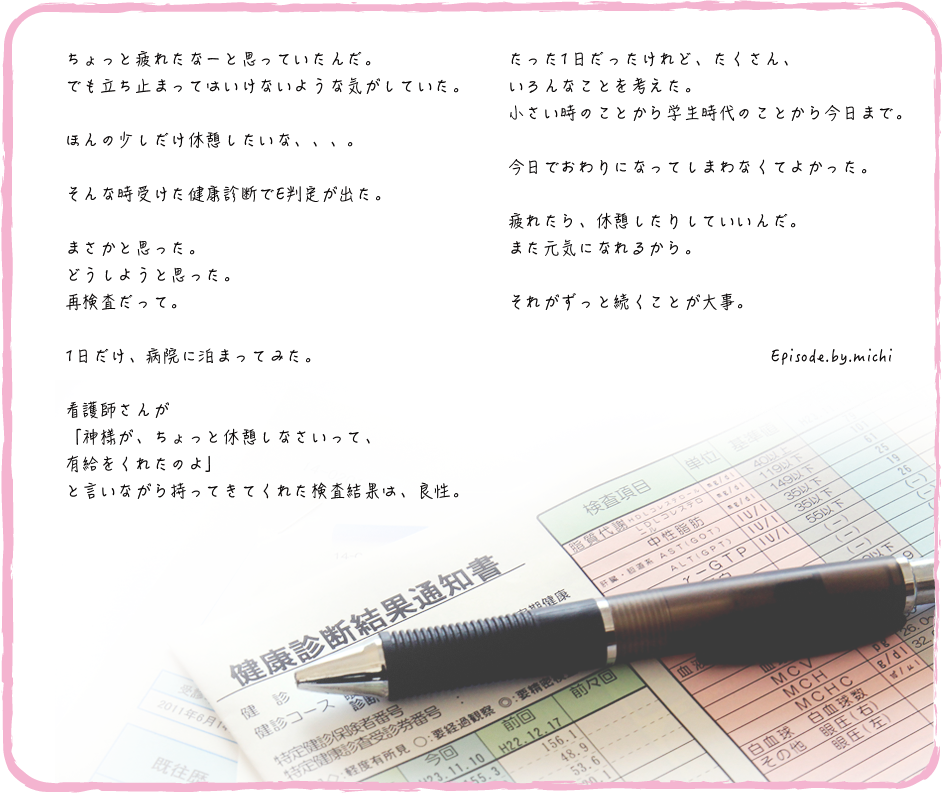 ちょっと疲れたなーと思っていたんだ。
でも立ち止まってはいけないような気がしていた。
ほんの少しだけ休憩したいな、、、。
そんな時受けた健康診断でE判定が出た。
まさかと思った。
どうしようと思った。
再検査だって。
1日だけ、病院に泊まってみた。
看護師さんが
「神様が、ちょっと休憩しなさいって、
有給をくれたのよ」
と言いながら持ってきてくれた検査結果は、良性。
たった1日だったけれど、たくさん、
いろんなことを考えた。
小さい時のことから学生時代のことから今日まで。
今日でおわりになってしまわなくてよかった。
疲れたら、休憩したりしていいんだ。
また元気になれるから。
それがずっと続くことが大事。
Episode.by.michi
健康診断結果通知書
健 診
健診コース
特定健診保険者番号
特定健康診査受診券番号
軽度有所見 ○:要経過観察 ◎:要精密検
今回 前回 前々回
H23.11.10 H22.12.17
155.3 156.1
48.9
53.6
既往歴
2011年6月1
検査項目 単位
脂質代謝 HDLコレステロール mg/dl 40以上
LDLコレステロ mg/dl 119以下
中性脂肪 mg/dl 149以下
肝臓・胆道系 AST(GOT) IU/l 35以下
ALT(GPT) IU/l 35以下
γ-GTP IU/l 55以下
(-)
(-)
(-)
61
25
19
26
(-)
(-)
MCV
MCH pg
MCHC g/dl
白血球 白血球数
その他 眼圧(右)
眼圧(左)